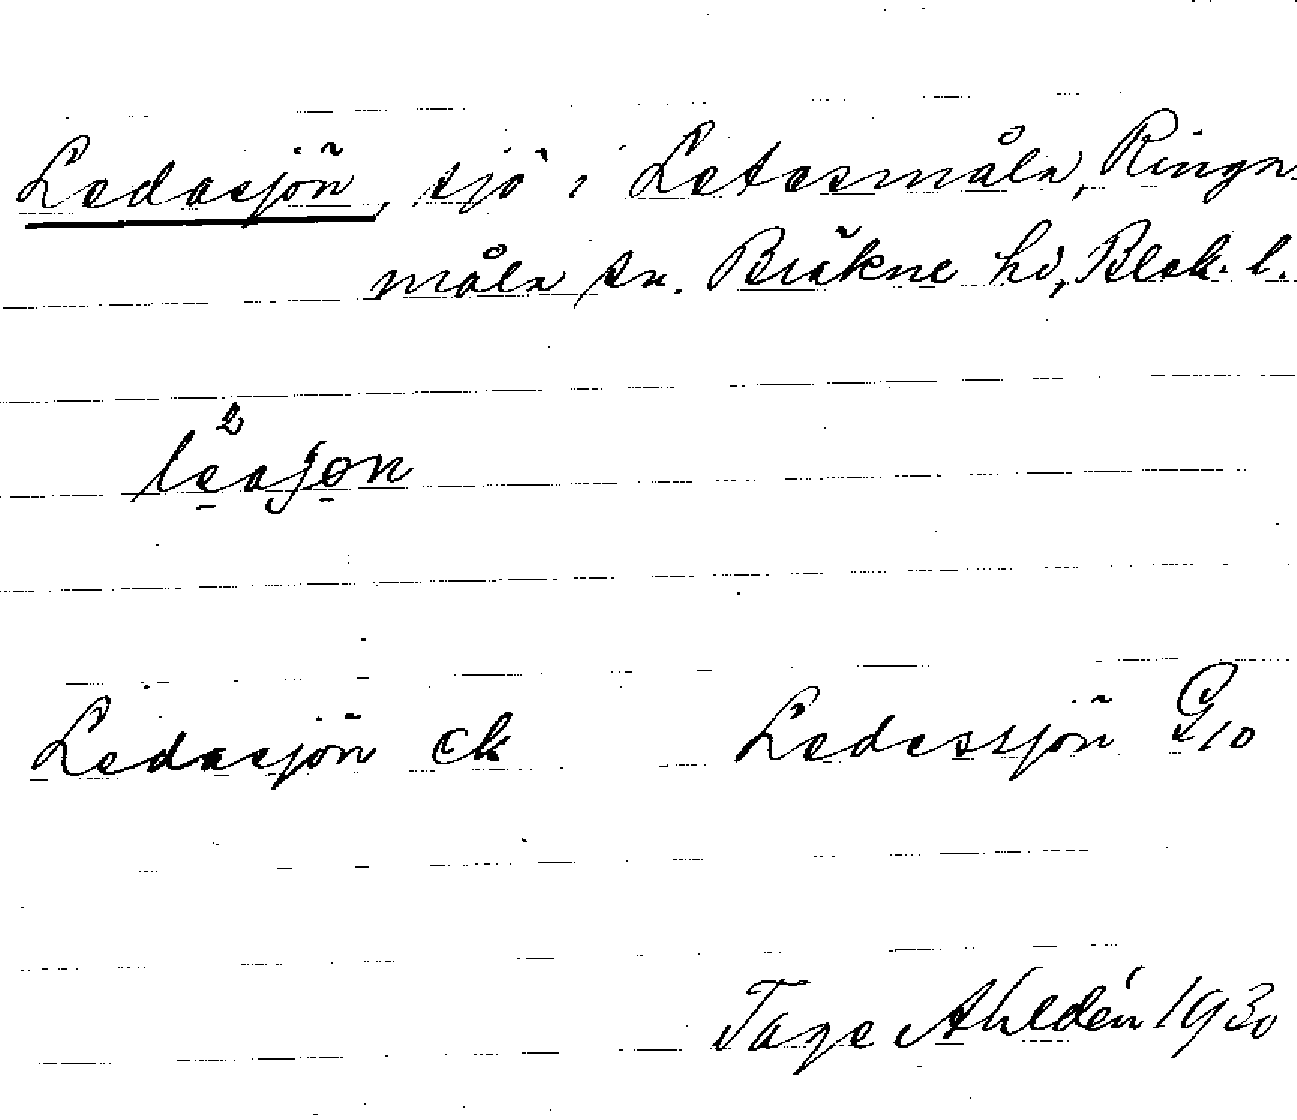 Ledasjön, sjö i Letesmåla, Ringa-
måla sn. Bräkne hd, Blek. l.
Ledasjön ek Ledessjön G10
Tage Ahldén 1930